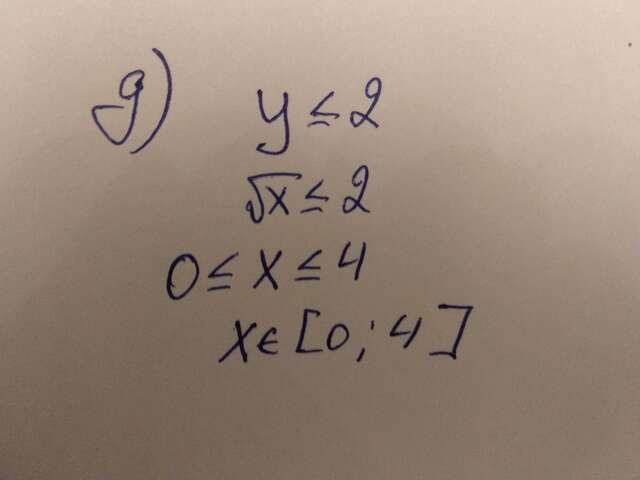 д) y ≤ 2
√x ≤ 2
0 ≤ x ≤ 4
x ∈ [0; 4]